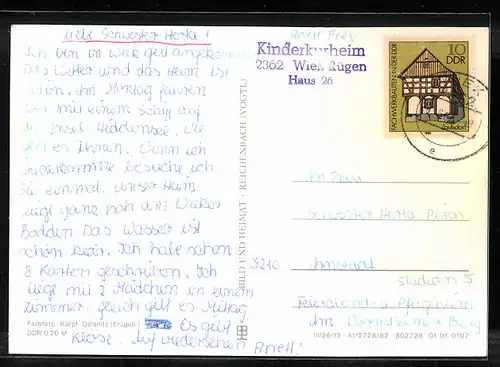 Liebe Schwester Herta!
Ich bin in Wiek gut angekommen.
Das Wetter und das Heim ist
schön. Am Montag fahren
wir mit einem Schiff auf
die Insel Hiddensee. Wie
geht es Ihnen. Wenn ich
besuche ich
Sie einmal. Unser Heim
liegt ganz nah am Wieker
Bodden. Das Wasser ist
schön klar. Ich habe schon
8 Karten geschrieben. Ich
liege mit 2 Mädchen in einem
Zimmer. gleich gibt es Mittag
Es gibt
Klöse. Auf wiedersehen Anett!
Farbfoto: Karpf, Oelsnitz (Erzgeb.)
DDR 0,20 M
BILD UND HEIMAT · REICHENBACH (VOGTL)
Anett Frey
Kinderkurheim
2362 Wiek Rügen
Haus 26
10
DDR
FACHWERKBAUTEN IN DER DDR
Zaulsdorf
e
An Frau
Schwester Herta
5210 Arnstadt
Station 5
Feierabend- u. Pflegeheim
Am Dornheimer Berg
III/26/13 · A1/2728/82 302728 01 01 0197